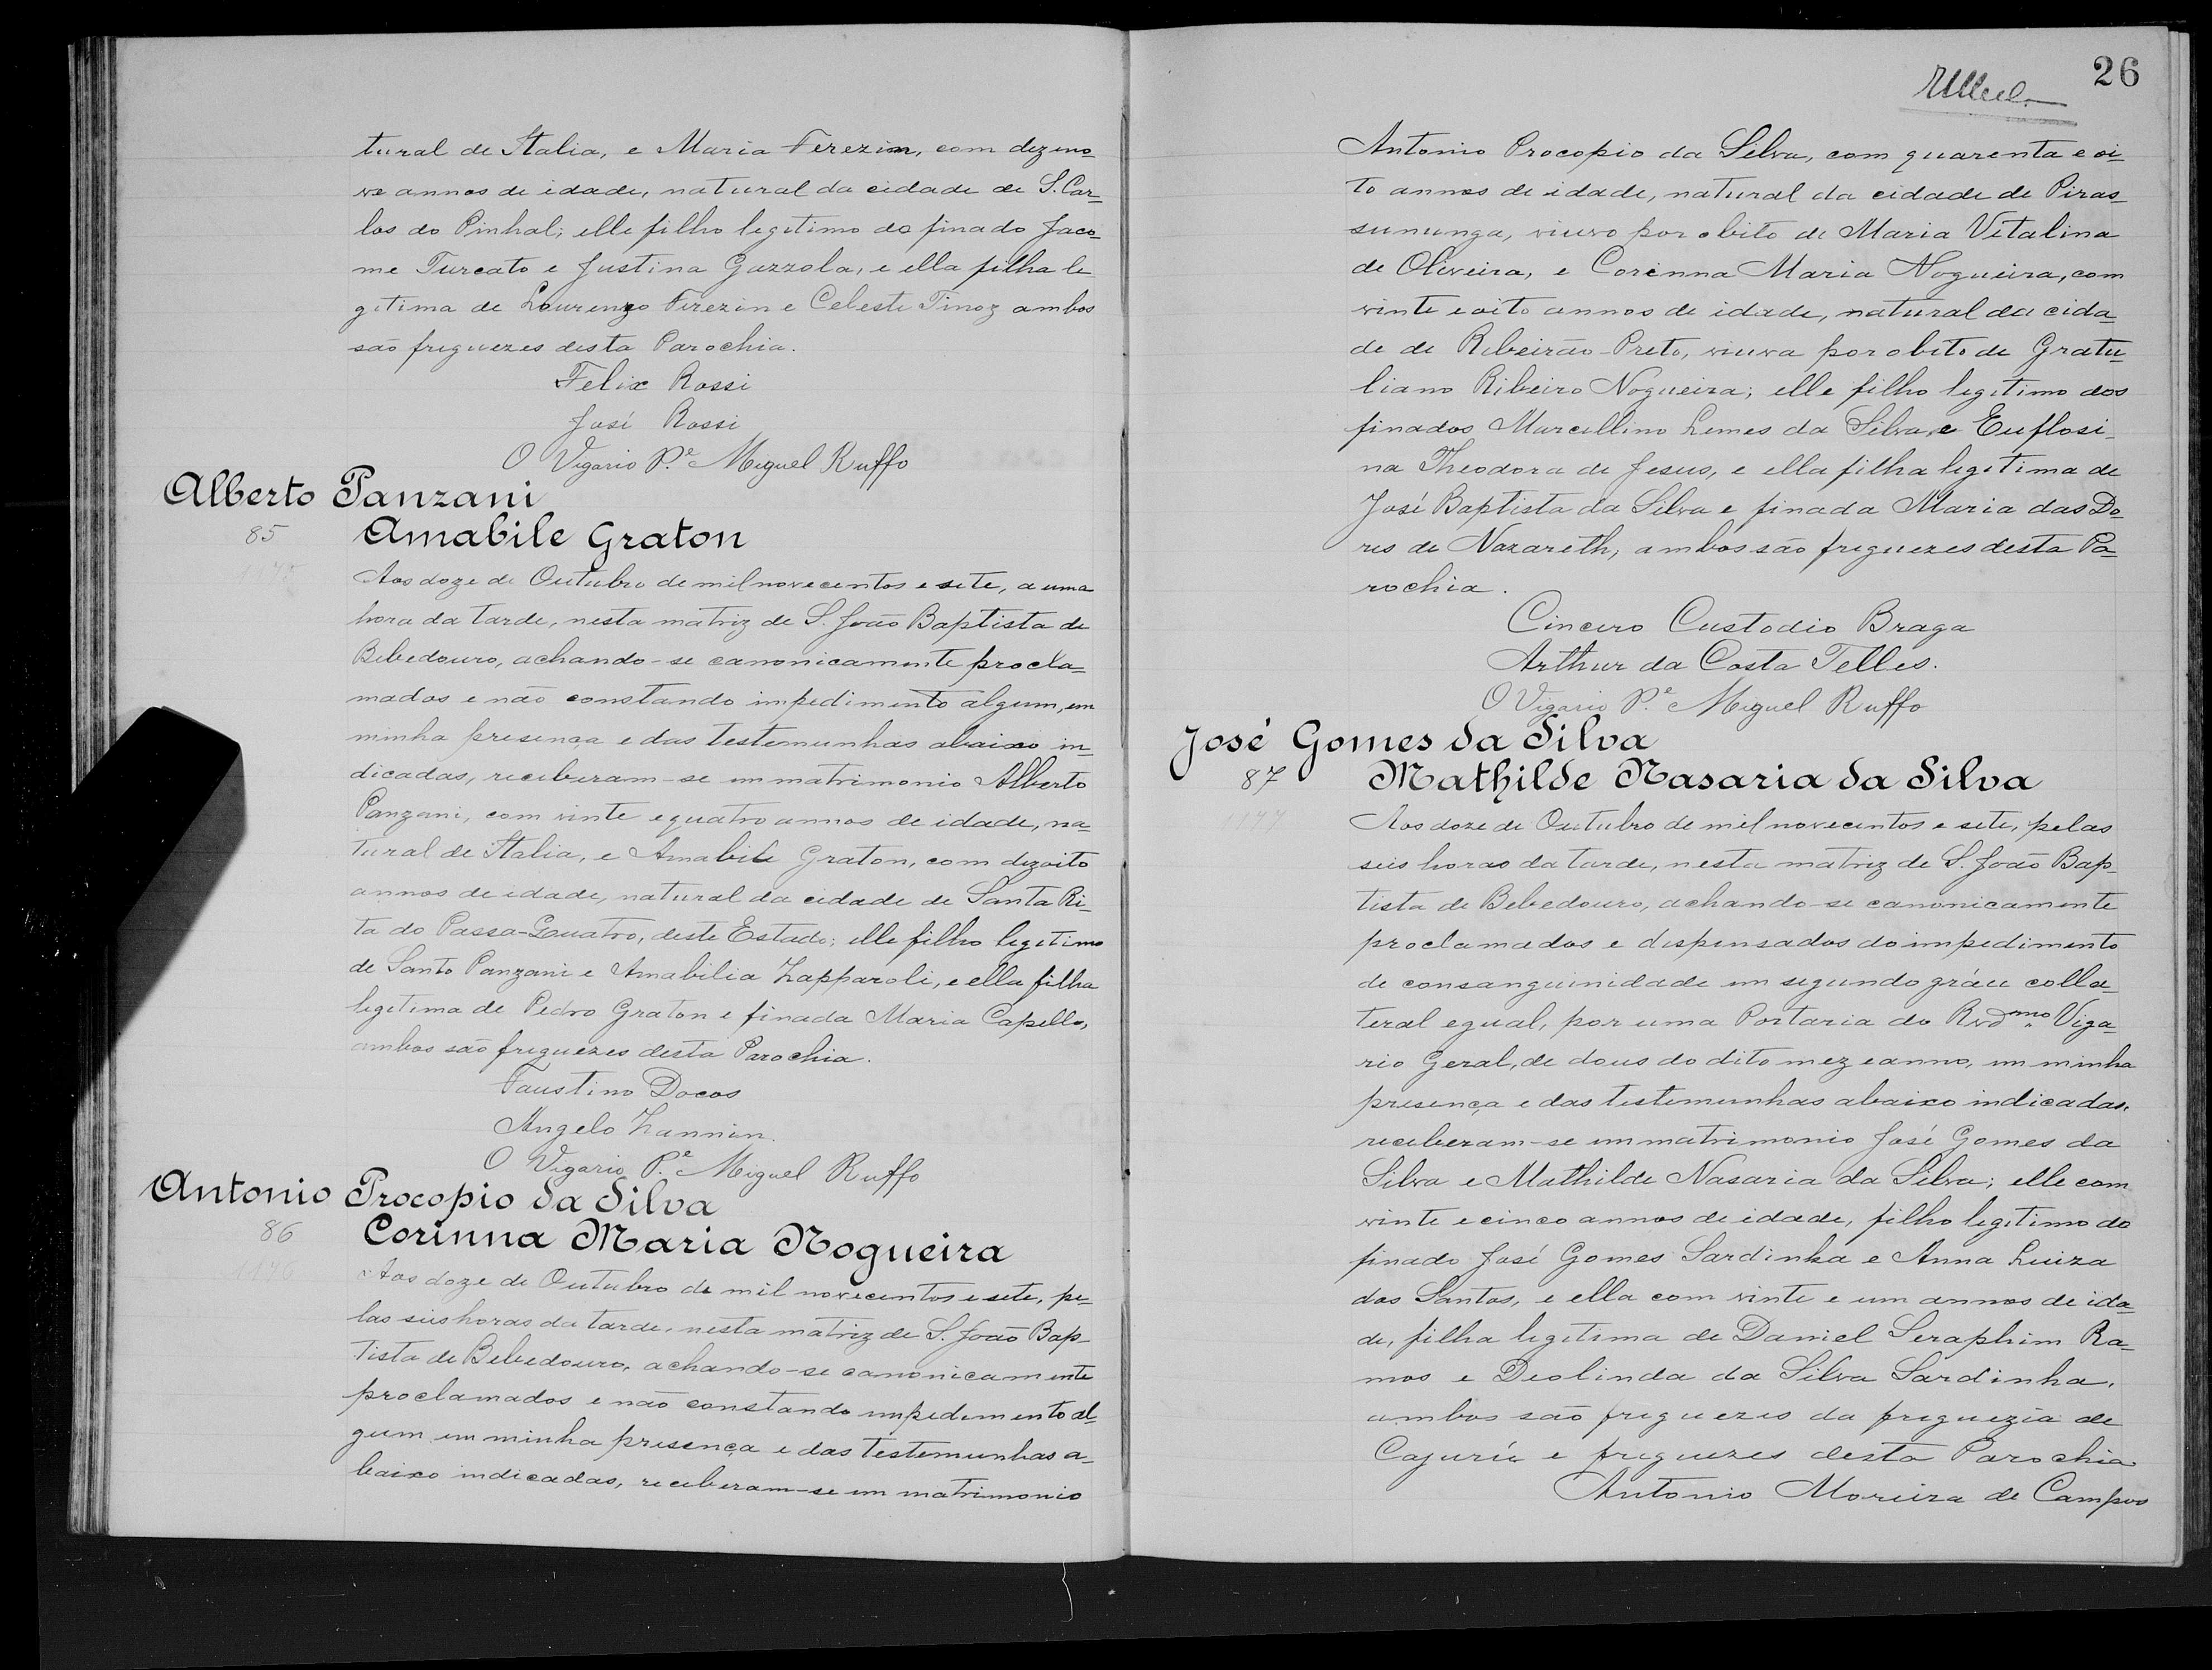 tural de Italia, e Maria Ferezin, com dezeno-
ve annos de idade, natural da cidade de S. Car-
los do Pinhal; elle filho legitimo do finado Jaco-
me Turcato e Justina Gazzola, e ella filha le
gitima de Lourenzo Ferezin e Celeste Tinoz ambos
são freguezes desta Parochia.
Felix Rossi
José Rossi
O Vigario P.e Miguel Ruffo
Alberto Panzani
85 Amabile Graton
Aos doze de Outubro de mil novecentos e sete, a uma
hora da tarde, nesta matriz de S. João Baptista de
Bebedouro, achando-se canonicamente procla-
mados e não constando impedimento algum, em
minha presença e das testemunhas abaixo in-
dicadas, receberam-se em matrimonio Alberto
Panzani, com vinte e quatro annos de idade, na-
tural de Italia, e Amabile Graton, com dezoito
annos de idade, natural da cidade de Santa Ri-
ta do Passa-Quatro, deste Estado; elle filho legitimo
de Santo Panzani e Amabilia Zapparoli, e ella filha
legitima de Pedro Graton e finada Maria Capello,
ambos são freguezes desta Parochia.
Faustino Docos
Angelo Zannin.
O Vigario P.e Miguel Ruffo
Antonio Procopio da Silva
86 Corinna Maria Nogueira
1176
Aos doze de Outubro de mil novecentos e sete, pe-
las seis horas da tarde, nesta matriz de S. João Bap-
tista de Bebedouro, achando-se canonicamente
proclamados e não constando impedimento al-
gum em minha presença e das testemunhas a-
baixo indicadas, receberam-se em matrimonio
26
Antonio Procopio da Silva, com quarenta e oi-
to annos de idade, natural da cidade de Piras-
sununga, viuvo por obito de Maria Vitalina
de Oliveira, e Corinna Maria Nogueira, com
vinte e oito annos de idade, natural da cida-
de de Ribeirão-Preto, viuva por obito de Gratu-
liano Ribeiro Nogueira; elle filho legitimo dos
finados Marcellino Lemes da Silva e Euflosi-
na Theodora de Jesus, e ella filha legitima de
José Baptista da Silva e finada Maria das Do-
res de Nazareth, ambos são freguezes desta Pa-
rochia.
Cincero Custodio Braga
Arthur da Costa Telles.
O Vigario P.e Miguel Ruffo
José Gomes da Silva
87 Mathilde Nasaria da Silva
1177
Aos doze de Outubro de mil novecentos e sete, pelas
seis horas da tarde, nesta matriz de S. João Bap-
tista de Bebedouro, achando-se canonicamente
proclamados e dispensados do impedimento
de consanguinidade em segundo gráu colla-
teral egual, por uma Portaria do Rvdmo Viga-
rio Geral, de dous do dito mez e anno, em minha
presença e das testemunhas abaixo indicadas,
receberam-se em matrimonio José Gomes da
Silva e Mathilde Nasaria da Silva; elle com
vinte e cinco annos de idade, filho legitimo do
finado José Gomes Sardinha e Anna Luiza
dos Santos, e ella com vinte e um annos de ida-
de, filha legitima de Daniel Seraphim Ra-
mos e Deolinda da Silva Sardinha,
ambos são freguezes da freguezia de
Cajurú e freguezes desta Parochia
Antonio Moreira de Campos